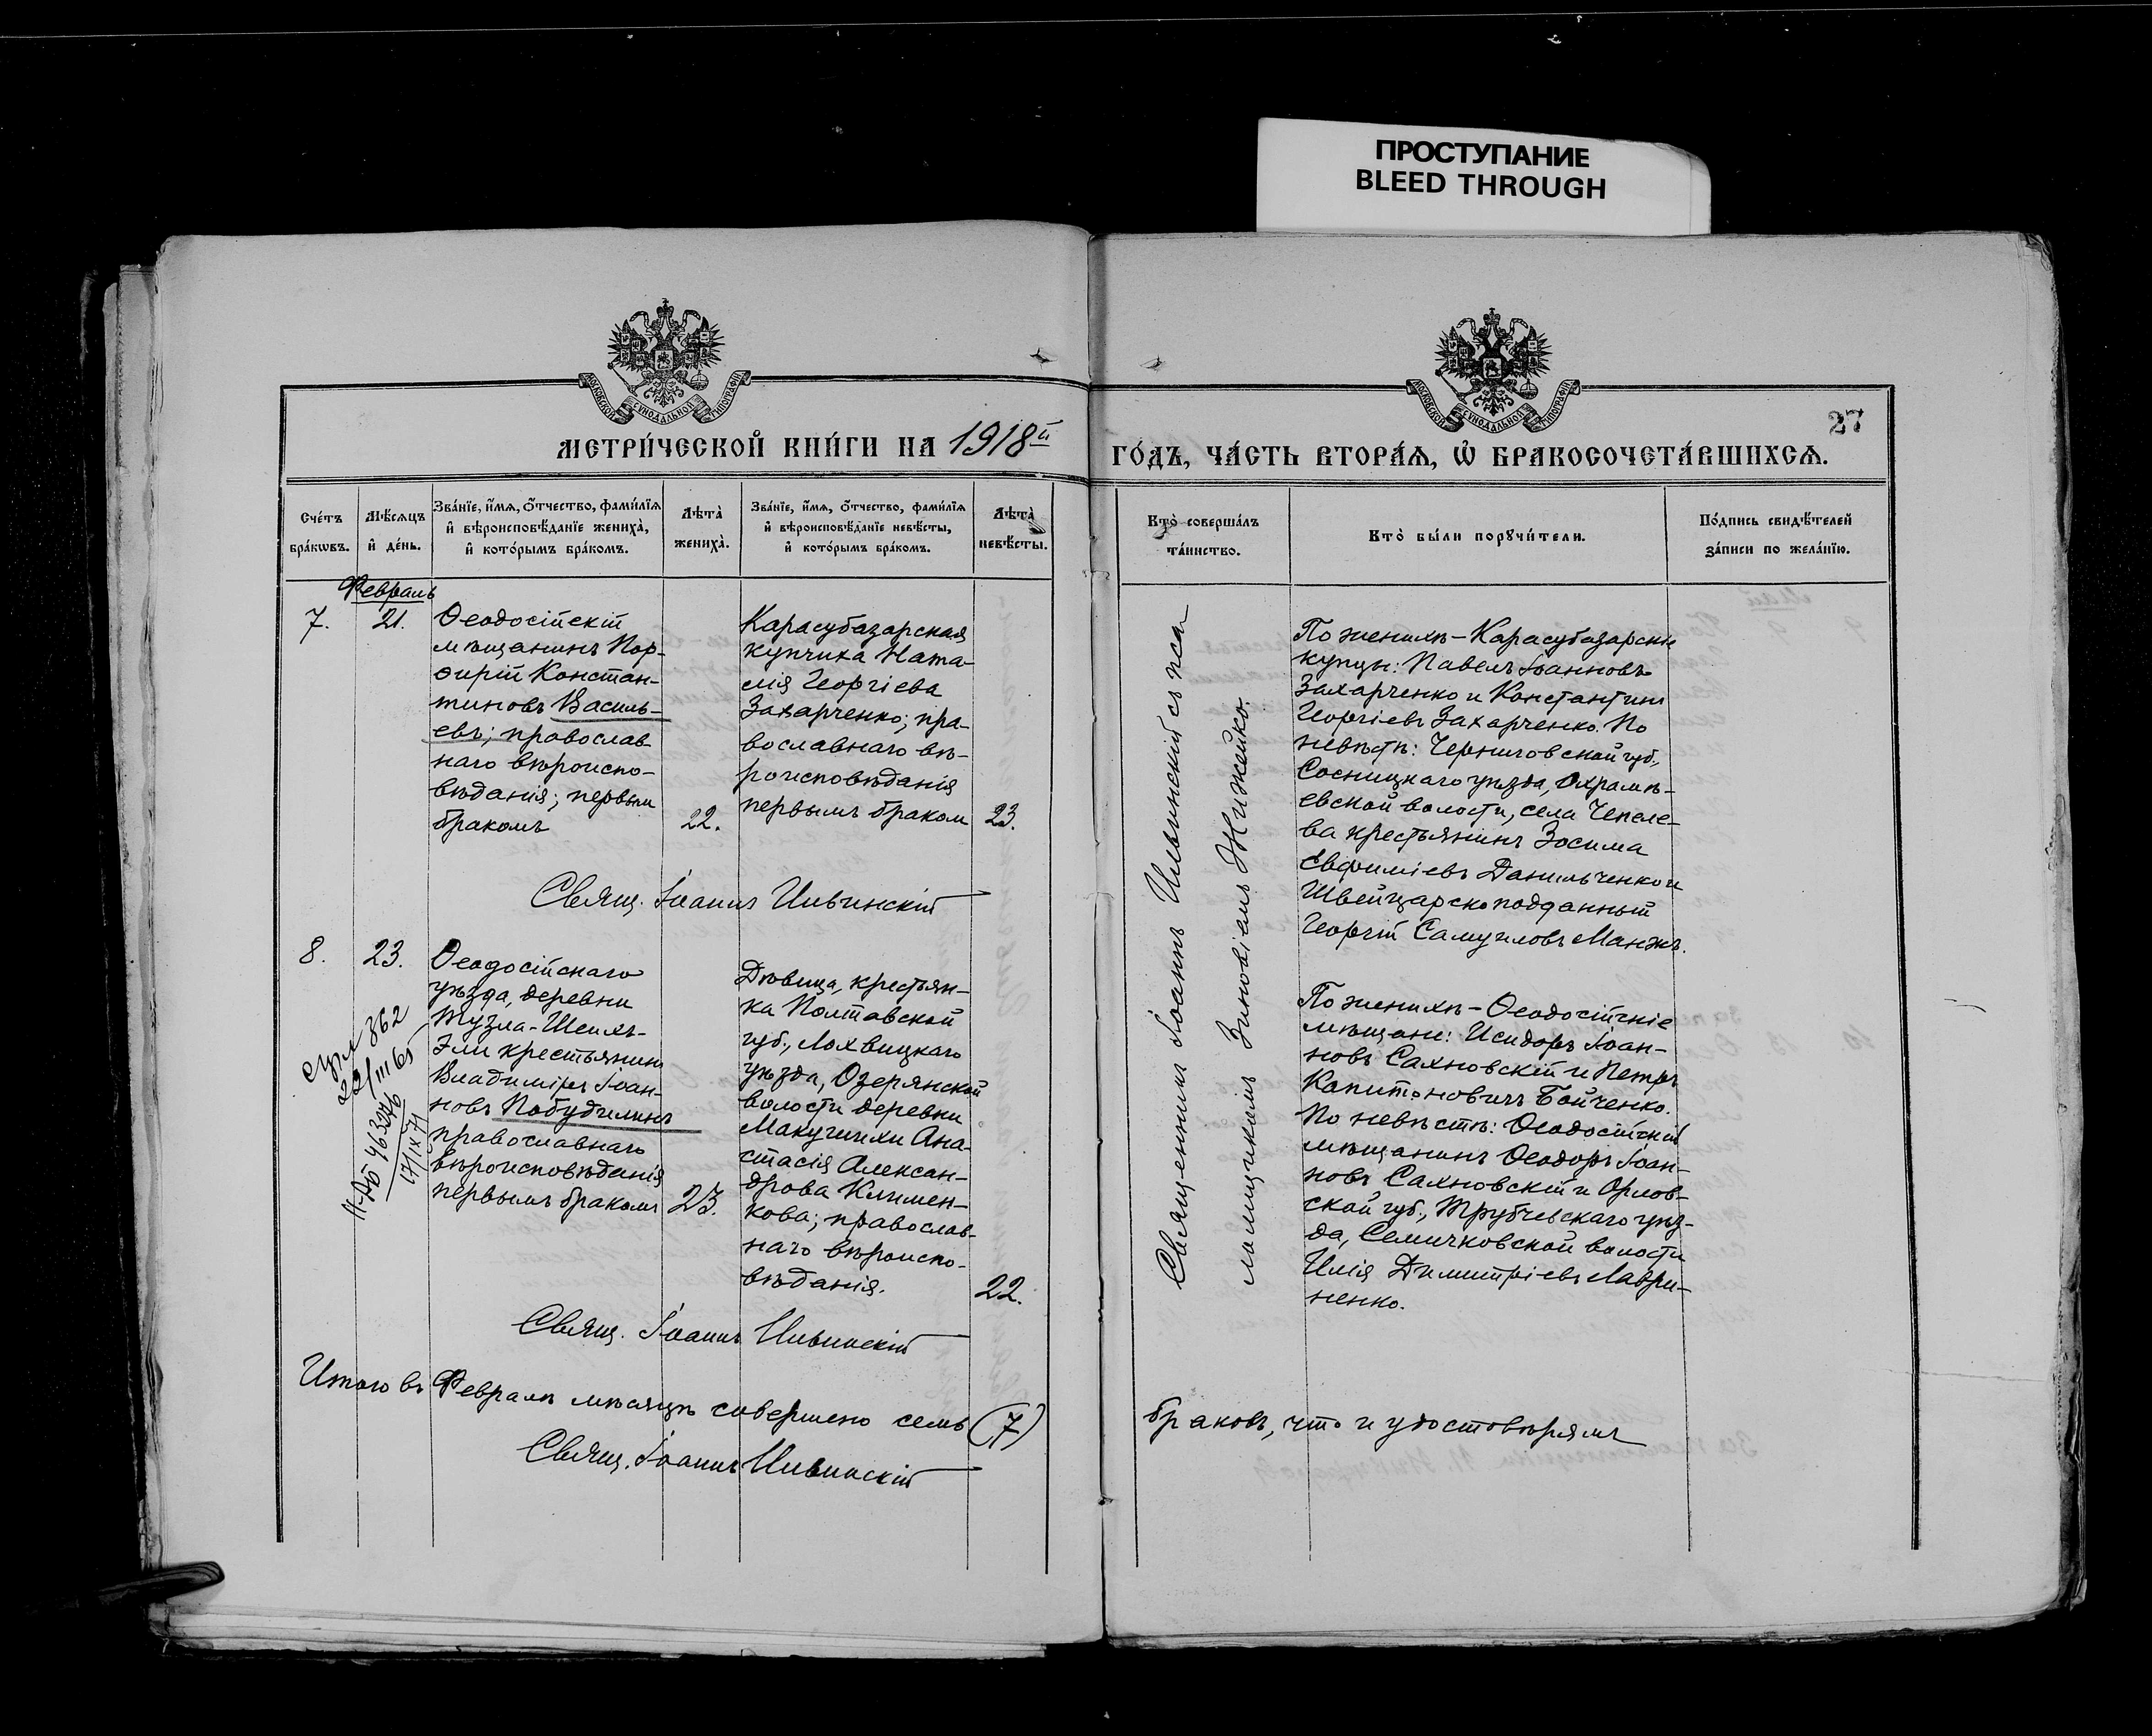 ПРОСТУПАНИЕ
BLEED THROUGH
МОСКОВСКОЙ СѴНОДАЛЬНОЙ ТИПОГРАФІИ
МОСКОВСКОЙ СѴНОДАЛЬНОЙ ТИПОГРАФІИ
27
МЕТРИ́ЧЕСКОЙ КНИ́ГИ НА 1918й
ГО́ДЪ, ЧА́СТЬ ВТОРА́Ѧ, Ѽ БРАКОСОЧЕТА́ВШИХСѦ.
Сче́тъ
бра́кѡвъ.
Мѣ́сѧцъ
и҆ де́нь.
Зва́нїе, и҆́мѧ, ѻ҆́тчество, фами́лїѧ
и҆ вѣроисповѣ́данїе жениха̀,
и҆ кото́рымъ бра́комъ.
Лѣ́та̀
жениха̀.
Зва́нїе, и҆́мѧ, ѻ҆́тчество, фами́лїѧ
и҆ вѣроисповѣ́данїе невѣ́сты,
и҆ кото́рымъ бра́комъ.
Лѣ́та̀
невѣ́сты.
Кто̀ соверша́лъ
та́инство.
Кто̀ бы́ли порꙋчи́тели.
По́дпись свидѣ́телей
за́писи по жела́нїю.
Февраль
7.
21.
Ѳеодосійскій
мѣщанинъ Пор-
фирій Констан-
тиновъ Василь-
евъ; православ
наго вѣроиспо-
вѣданія; первым
бракомъ
22.
Карасубазарская
купчиха Ната-
лія Георгіева
Захарченко; пра-
вославнаго вѣ-
роисповѣданія
первымъ браком
23.
Свящ. Іоаннъ Ильинскій
Священникъ Іоаннъ Ильинскій съ пса-
ломщикомъ Зиновіемъ Нижейко.
По женихѣ - Карасубазарские
купцы: Павелъ Іоанновъ
Захарченко и Константинъ
Георгіевъ Захарченко. По
невѣстѣ: Черниговской губ.,
Сосницкаго уѣзда, Охрамѣ-
евской волости, села Чепеле-
ва крестьянинъ Зосима
Евфиміевъ Данильченко и
Швейцарскоподданный
Георгій Самуиловъ Манжъ.
8.
23.
Ѳеодосійскаго
уѣзда, деревни
Тузла-Шеихъ-
Эли крестьянинъ
Владиміръ Іоан-
новъ Побудилинъ
православнаго
вѣроисповѣданія
первымъ бракомъ
23.
362
22/III 65
463246
17/IX 71
Дѣвица, крестьян-
ка Полтавской
губ., Лохвицкаго
уѣзда, Озерянской
волости деревни
Макушихи Ана-
стасія Алексан-
дрова Климен-
кова; православ-
наго вѣроиспо-
вѣданія.
22.
По женихѣ - Ѳеодосійскіе
мѣщане: Исидоръ Іоан-
новъ Сахновскій и Петръ
Капитоновичъ Бойченко.
По невѣстѣ: Ѳеодосійскій
мѣщанинъ Ѳеодоръ Іоан-
новъ Сахновскій и Орлов-
ской губ., Трубчевскаго уѣз-
да, Семичковской волости
Илія Димитріевъ Лаври-
ненко.
Свящ. Іоаннъ Ильинскій
Итого въ Февралѣ мѣсяцѣ совершено семь (7)
браковъ, что и удостовѣряемъ
Свящ. Іоаннъ Ильинскій